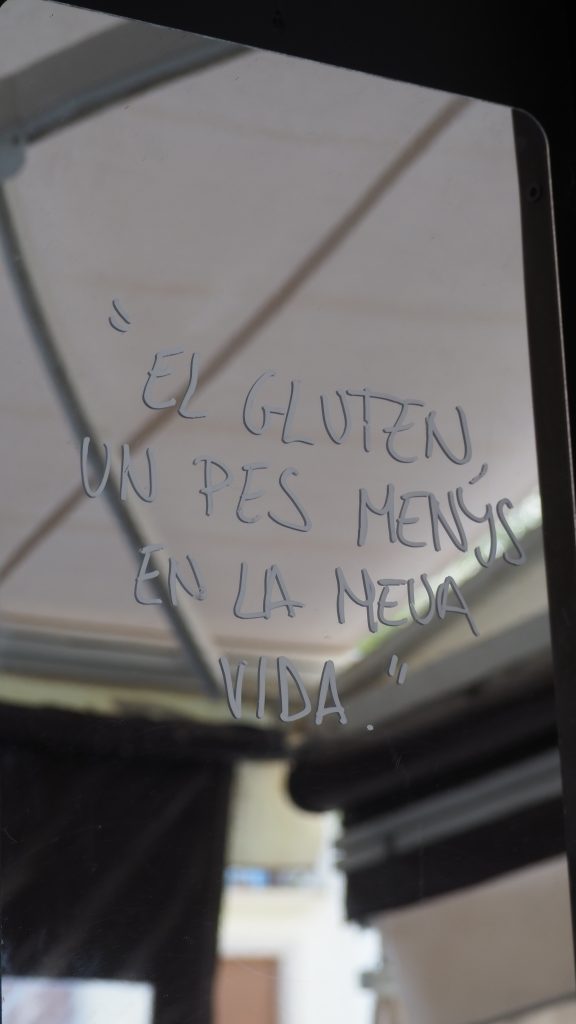 "EL GLUTEN,
UN PES MENYS
EN LA MEUA
VIDA."